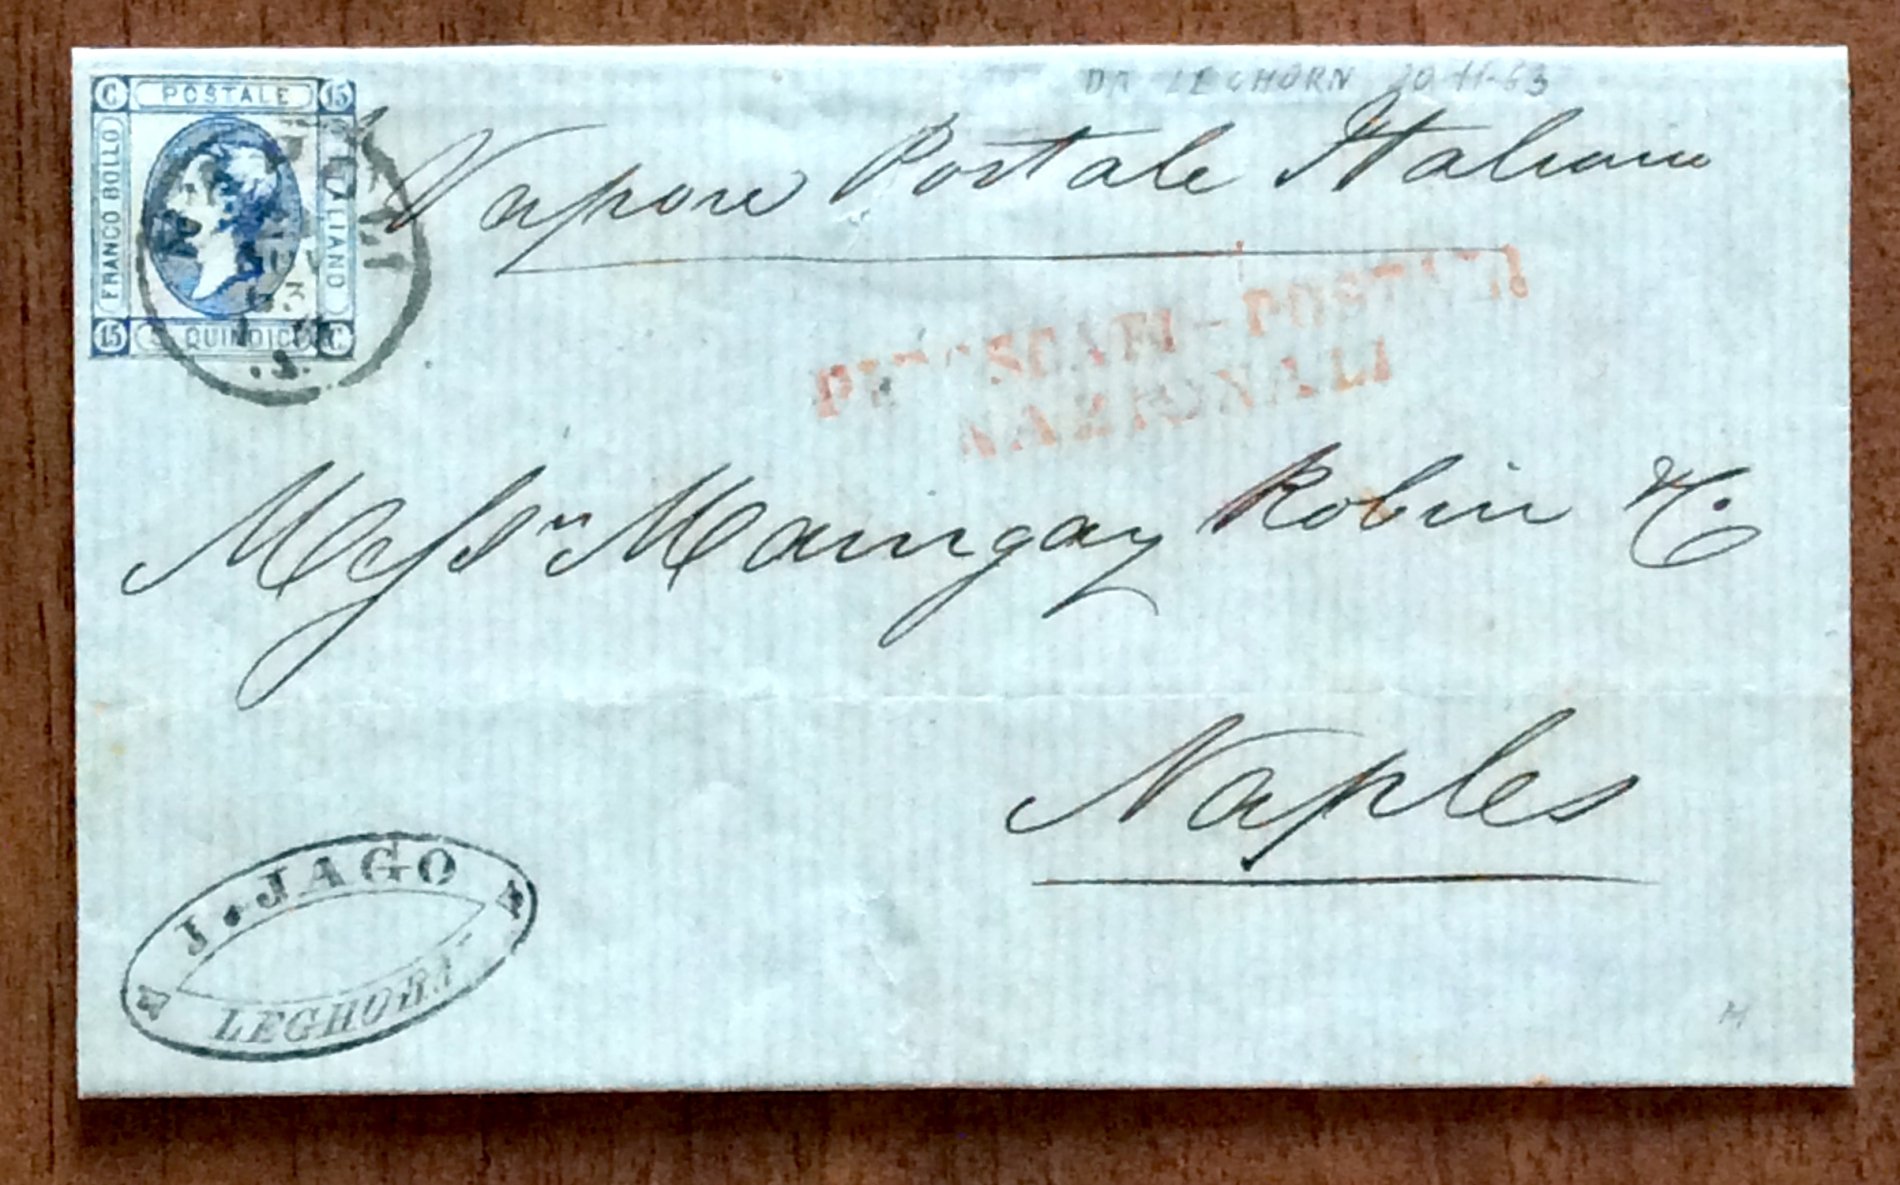 DA LEGHORN 20-11-63
C POSTALE 15
FRANCO BOLLO
ITALIANO
15 C. QUINDICI C
NAPOLI
NOV
63
.S.
Vapore Postale Italiano
PIROSCAFI-POSTALI
NAZIONALI
Messrs Maingay Robin & C.
Naples
J. JAGO
LEGHORN